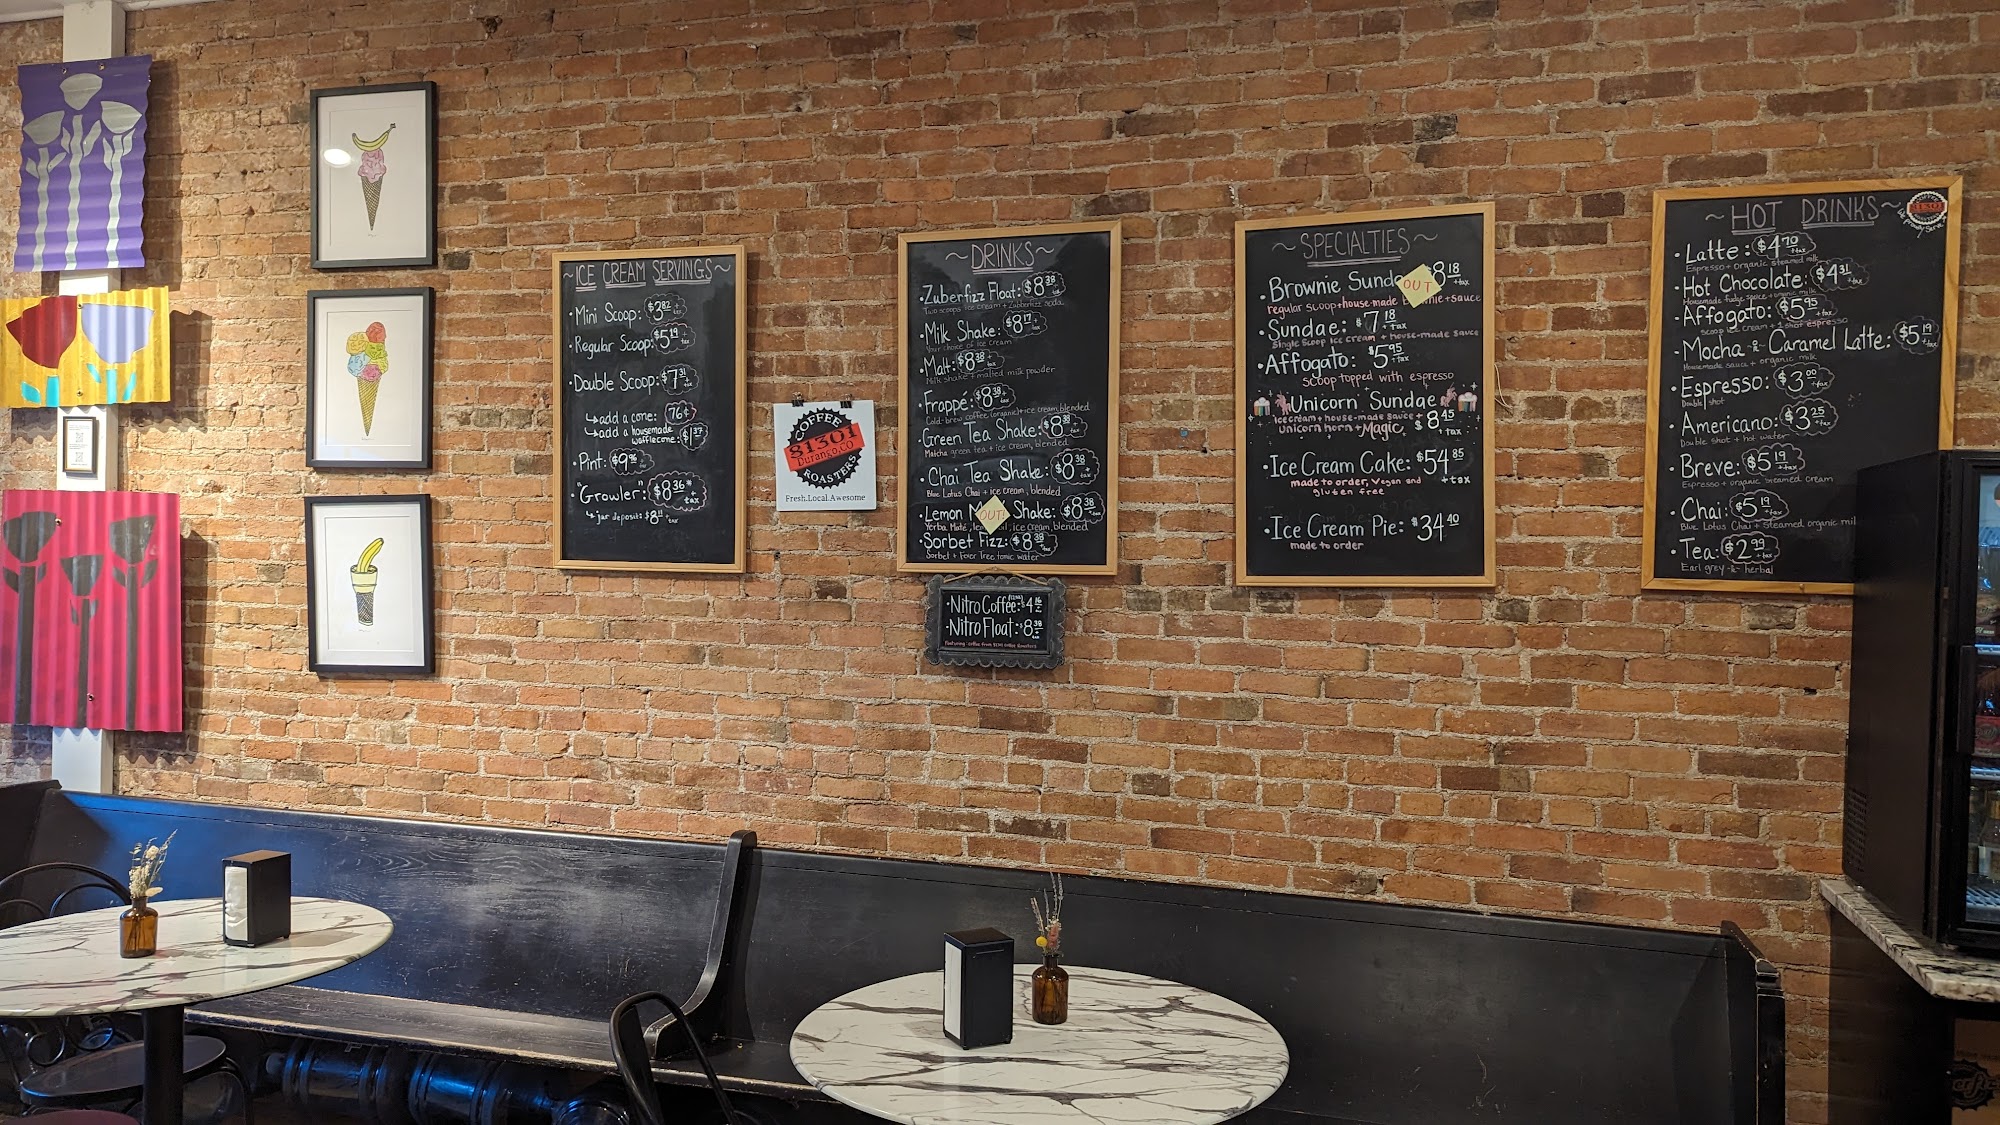 ~ICE CREAM SERVINGS~
•Mini Scoop: $3.82 +tax
•Regular Scoop: $5.19 +tax
•Double Scoop: $7.31 +tax
↳add a cone: 76¢
↳add a housemade wafflecone: $1.37
•Pint: $9.96 +tax
•"Growler": $8.36* +tax
↳jar deposit: +tax
COFFEE
81301
Durango, CO
ROASTERS
Fresh.Local.Awesome
~DRINKS~
•Zuberfizz Float: $8.38 +tax
Two scoops ice cream + Zuberfizz soda
•Milk Shake: $8.17 +tax
Your choice of ice cream
•Malt: $8.38 +tax
Milk shake + malted milk powder
•Frappé: $8.38 +tax
Cold-brew coffee (organic) + ice cream, blended
•Green Tea Shake: $8.38 +tax
Matcha green tea + ice cream, blended
•Chai Tea Shake: $8.38 +tax
Blue Lotus Chai + ice cream, blended
•Lemon OUT! Shake: $8.38 +tax
Yerba Maté, ice cream, blended
•Sorbet Fizz: $8.38 +tax
Sorbet + Fever Tree tonic water
•Nitro Coffee: $4.16
•Nitro Float: $8.38 +tax
Featuring coffee from 81301 Coffee Roasters
~SPECIALTIES~
•Brownie Sunda OUT $8.18 +tax
regular scoop + house-made + sauce
•Sundae: $7.18 +tax
single scoop ice cream + house-made sauce
•Affogato: $5.95 +tax
scoop topped with espresso
Unicorn Sundae
Ice cream + house-made sauce +
unicorn horn + Magic $8.45 +tax
•Ice Cream Cake: $54.85 +tax
made to order, vegan and
gluten free
•Ice Cream Pie: $34.40
made to order
~HOT DRINKS~
COFFEE
81301
We Proudly Serve
•Latte: $4.70 +tax
Espresso + organic steamed milk
•Hot Chocolate: $4.31 +tax
Homemade fudge sauce + organic milk
•Affogato: $5.95 +tax
Scoop ice cream + 1 shot espresso
•Mocha -&- Caramel Latte: $5.19 +tax
Housemade sauce + organic milk
•Espresso: $3.00 +tax
Double shot
•Americano: $3.25 +tax
Double shot + hot water
•Breve: $5.19 +tax
Espresso + organic steamed cream
•Chai: $5.19 +tax
Blue Lotus Chai + steamed organic mil
•Tea: $2.99 +tax
Earl grey -&- herbal